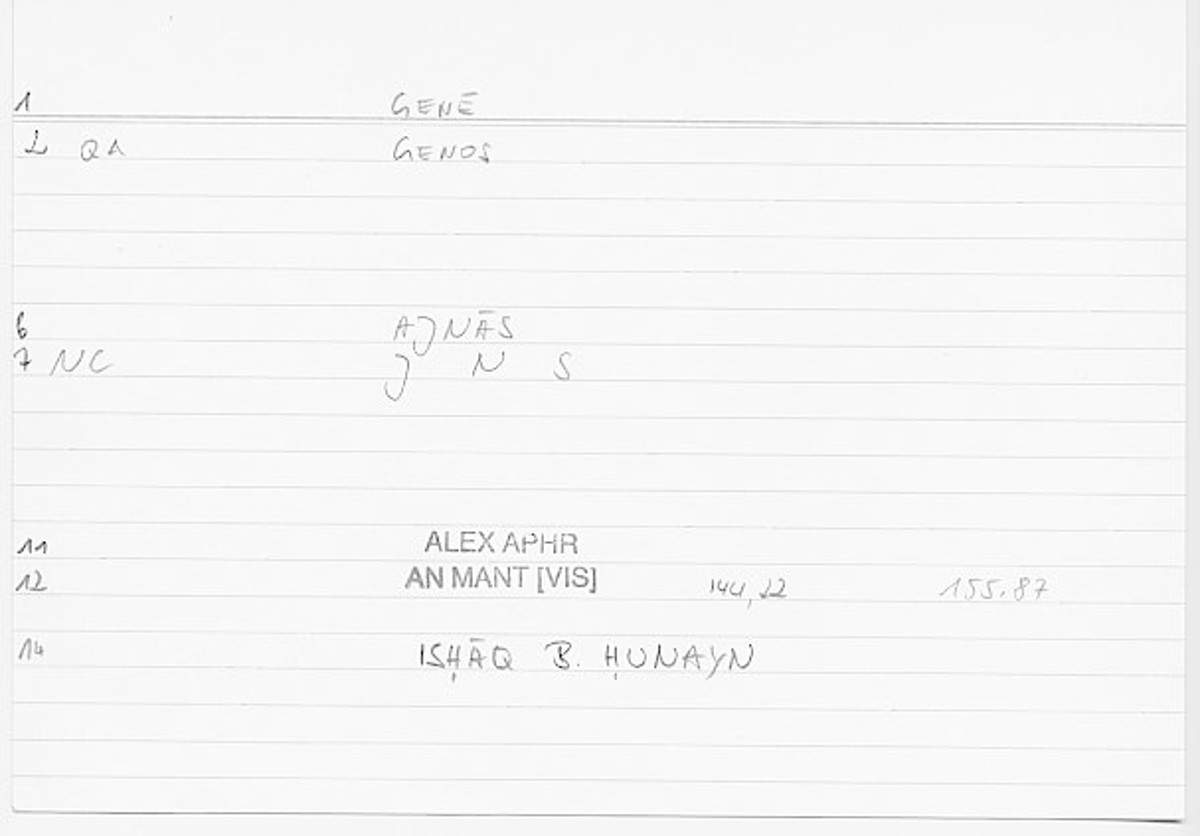 1 GENĒ
2 QA GENOS
6 AJNĀS
7 NC J N S
11 ALEX APHR
12 AN MANT [VIS] 144,22 155.87
14 ISḤĀQ B. ḤUNAYN